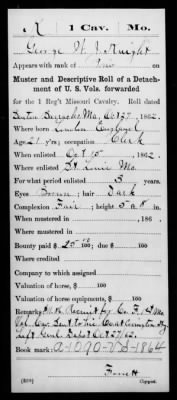 K | 1 Cav. | Mo.
George W. J. Knight
Appears with rank of Priv on
Muster and Descriptive Roll of a Detach-
ment of U. S. Vols. forwarded
for the 1 Reg't Missouri Cavalry. Roll dated
Benton Barracks, Mo, Oct 27, 1862.
Where born London England
Age 21 y'rs; occupation Clerk
When enlisted Oct 15, 1862
Where enlisted St. Louis Mo.
For what period enlisted 3 years.
Eyes Brown; hair Dark
Complexion Fair; height 5 ft. 8 in.
When mustered in , 186 .
Where mustered in
Bounty paid $ 25 00/100; due $ 100
Where credited
Company to which assigned
Valuation of horse, $ 100
Valuation of horse equipments, $ 100
Remarks: Recruit for Co. F, 1 Mo
Vol Cav. Sent to his Co at
Genl Oct 27, 62.
Book mark: a-1090-VS-1864
(339)
Copyist.